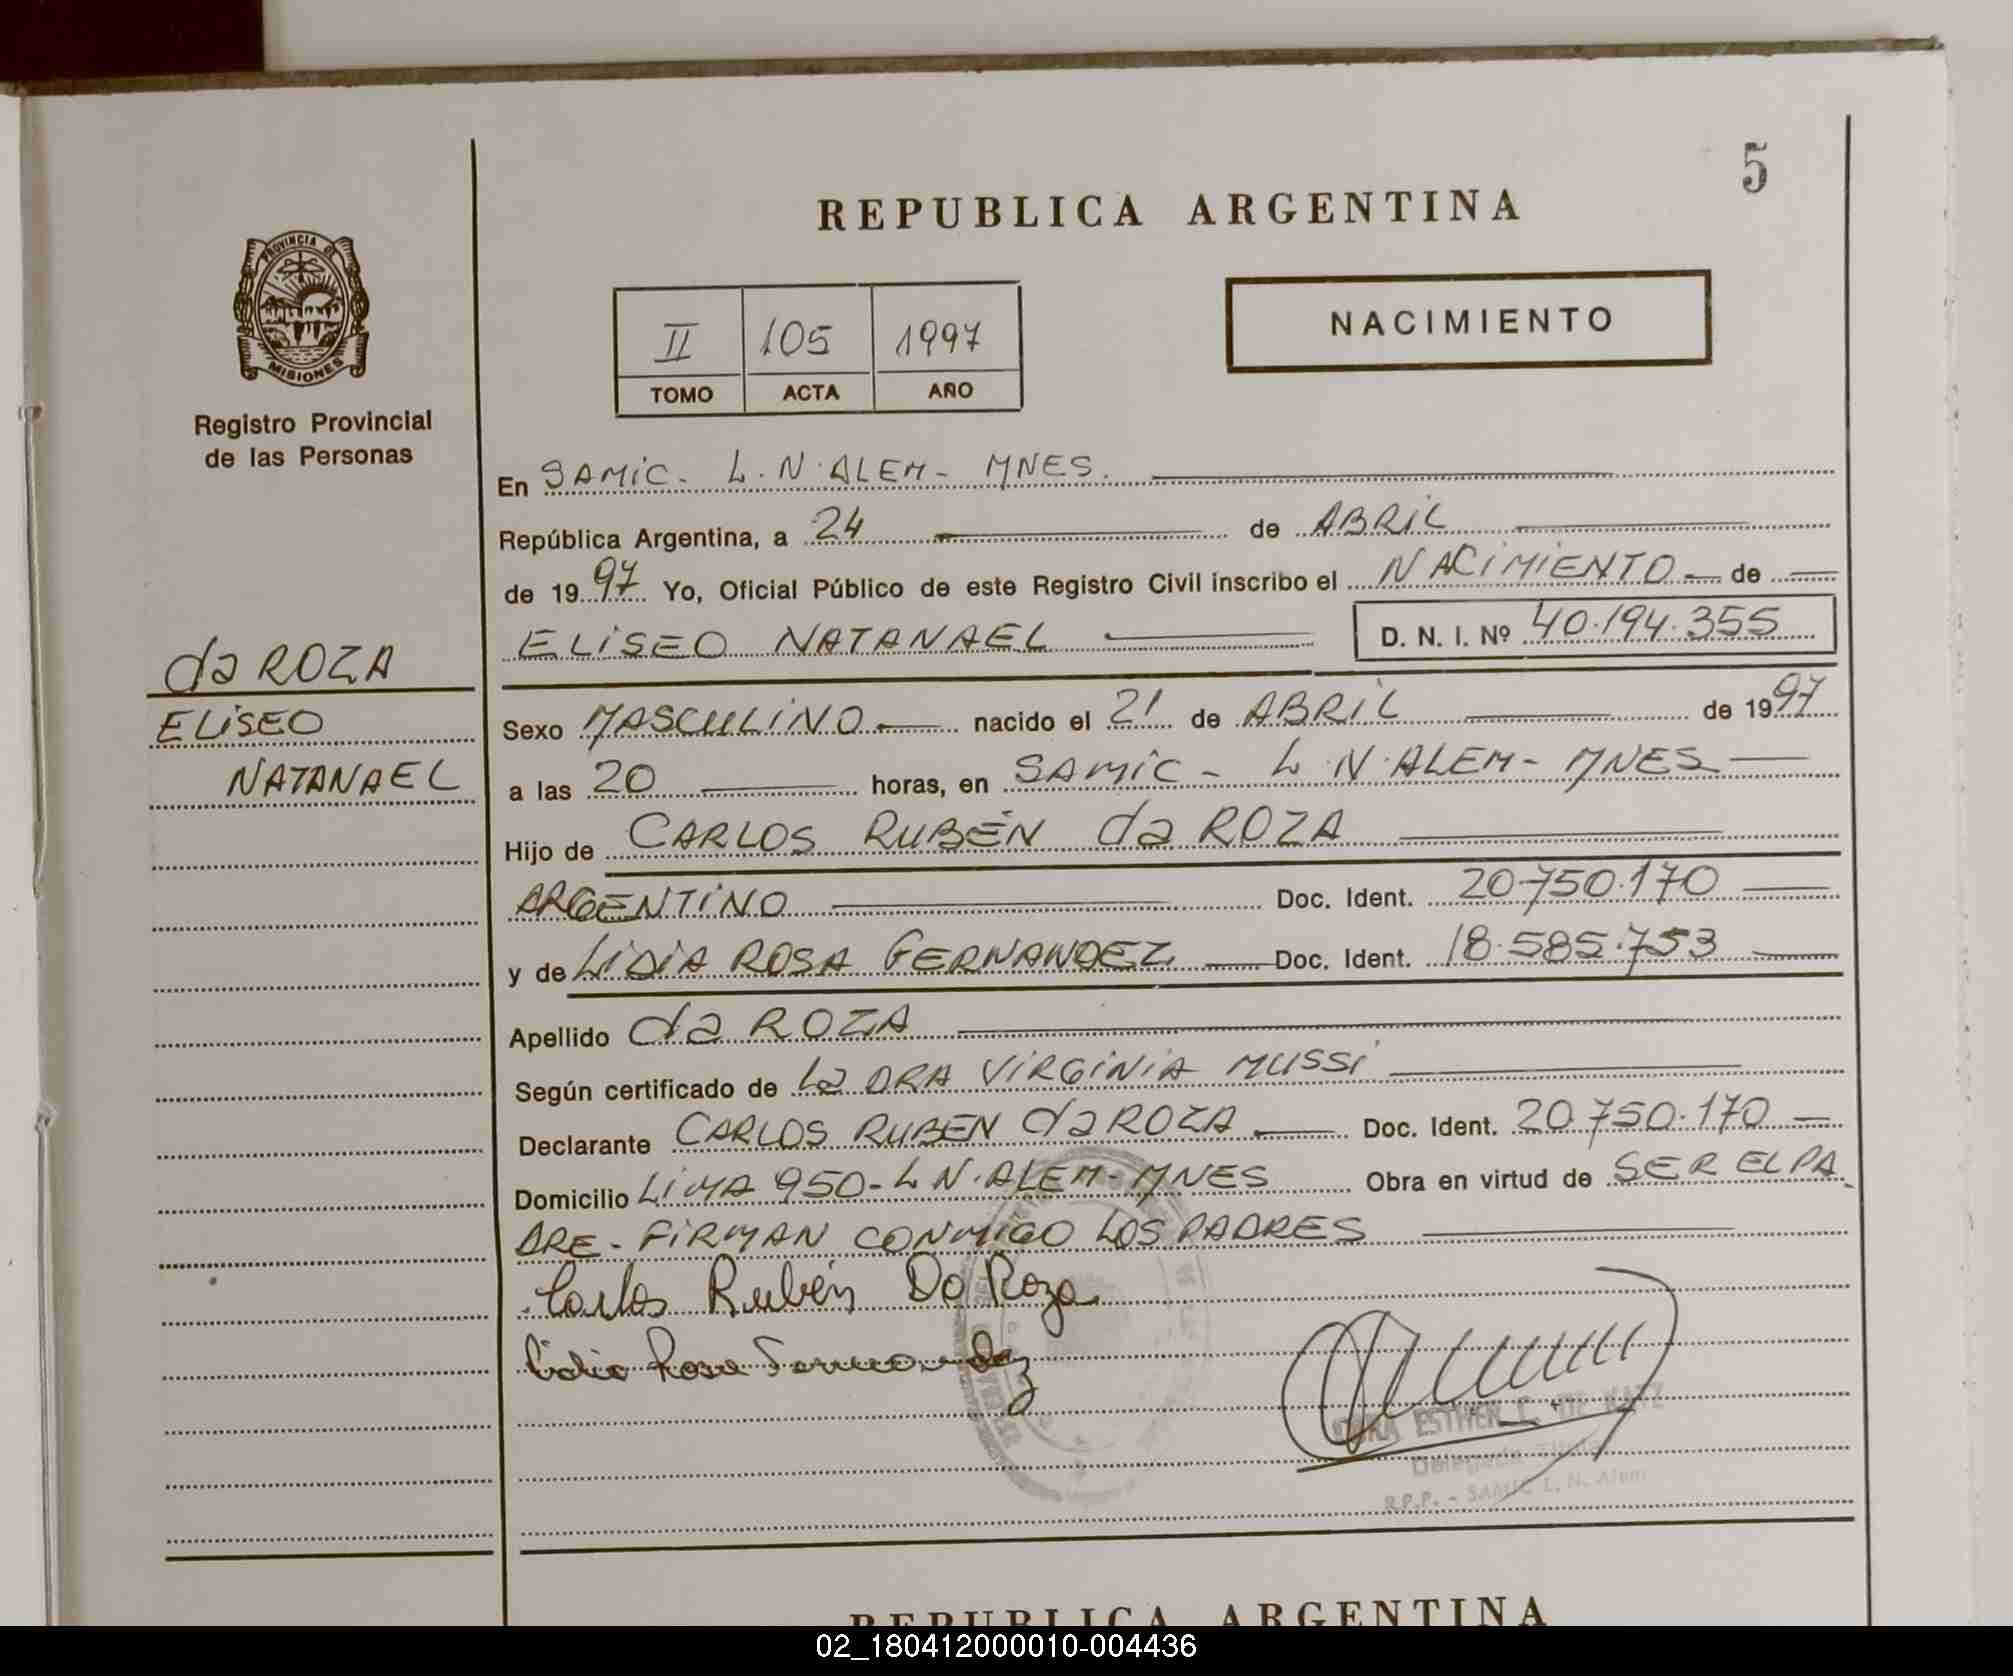 5
REPUBLICA ARGENTINA
PROVINCIA DE
MISIONES
Registro Provincial
de las Personas
II 105 1997
TOMO ACTA AÑO
NACIMIENTO
En SAMIC - L.N. ALEM - MNES.
República Argentina, a 24 de ABRIL
de 1997 Yo, Oficial Público de este Registro Civil inscribo el NACIMIENTO de
ELISEO NATANAEL D. N. I. Nº 40.194.355
da ROZA
ELISEO
NATANAEL
Sexo MASCULINO nacido el 21 de ABRIL de 1997
a las 20 horas, en SAMIC - L.N. ALEM - MNES
Hijo de CARLOS RUBÉN da ROZA
ARGENTINO Doc. Ident. 20.750.170
y de LIDIA ROSA FERNANDEZ Doc. Ident. 18.585.753
Apellido da ROZA
Según certificado de La DRA VIRGINIA MUSSI
Declarante CARLOS RUBEN da ROZA Doc. Ident. 20.750.170
Domicilio LIMA 950 - L N. ALEM - MNES Obra en virtud de SER EL PA
DRE - FIRMAN CONMIGO LOS PADRES
Carlos Rubén Da Roza
Lidia Rosa Fernandez
ESTHER C. DE KATZ
Delegada Titular
R.P.P. - SAMIC L. N. Alem
REPUBLICA ARGENTINA
02_180412000010-004436